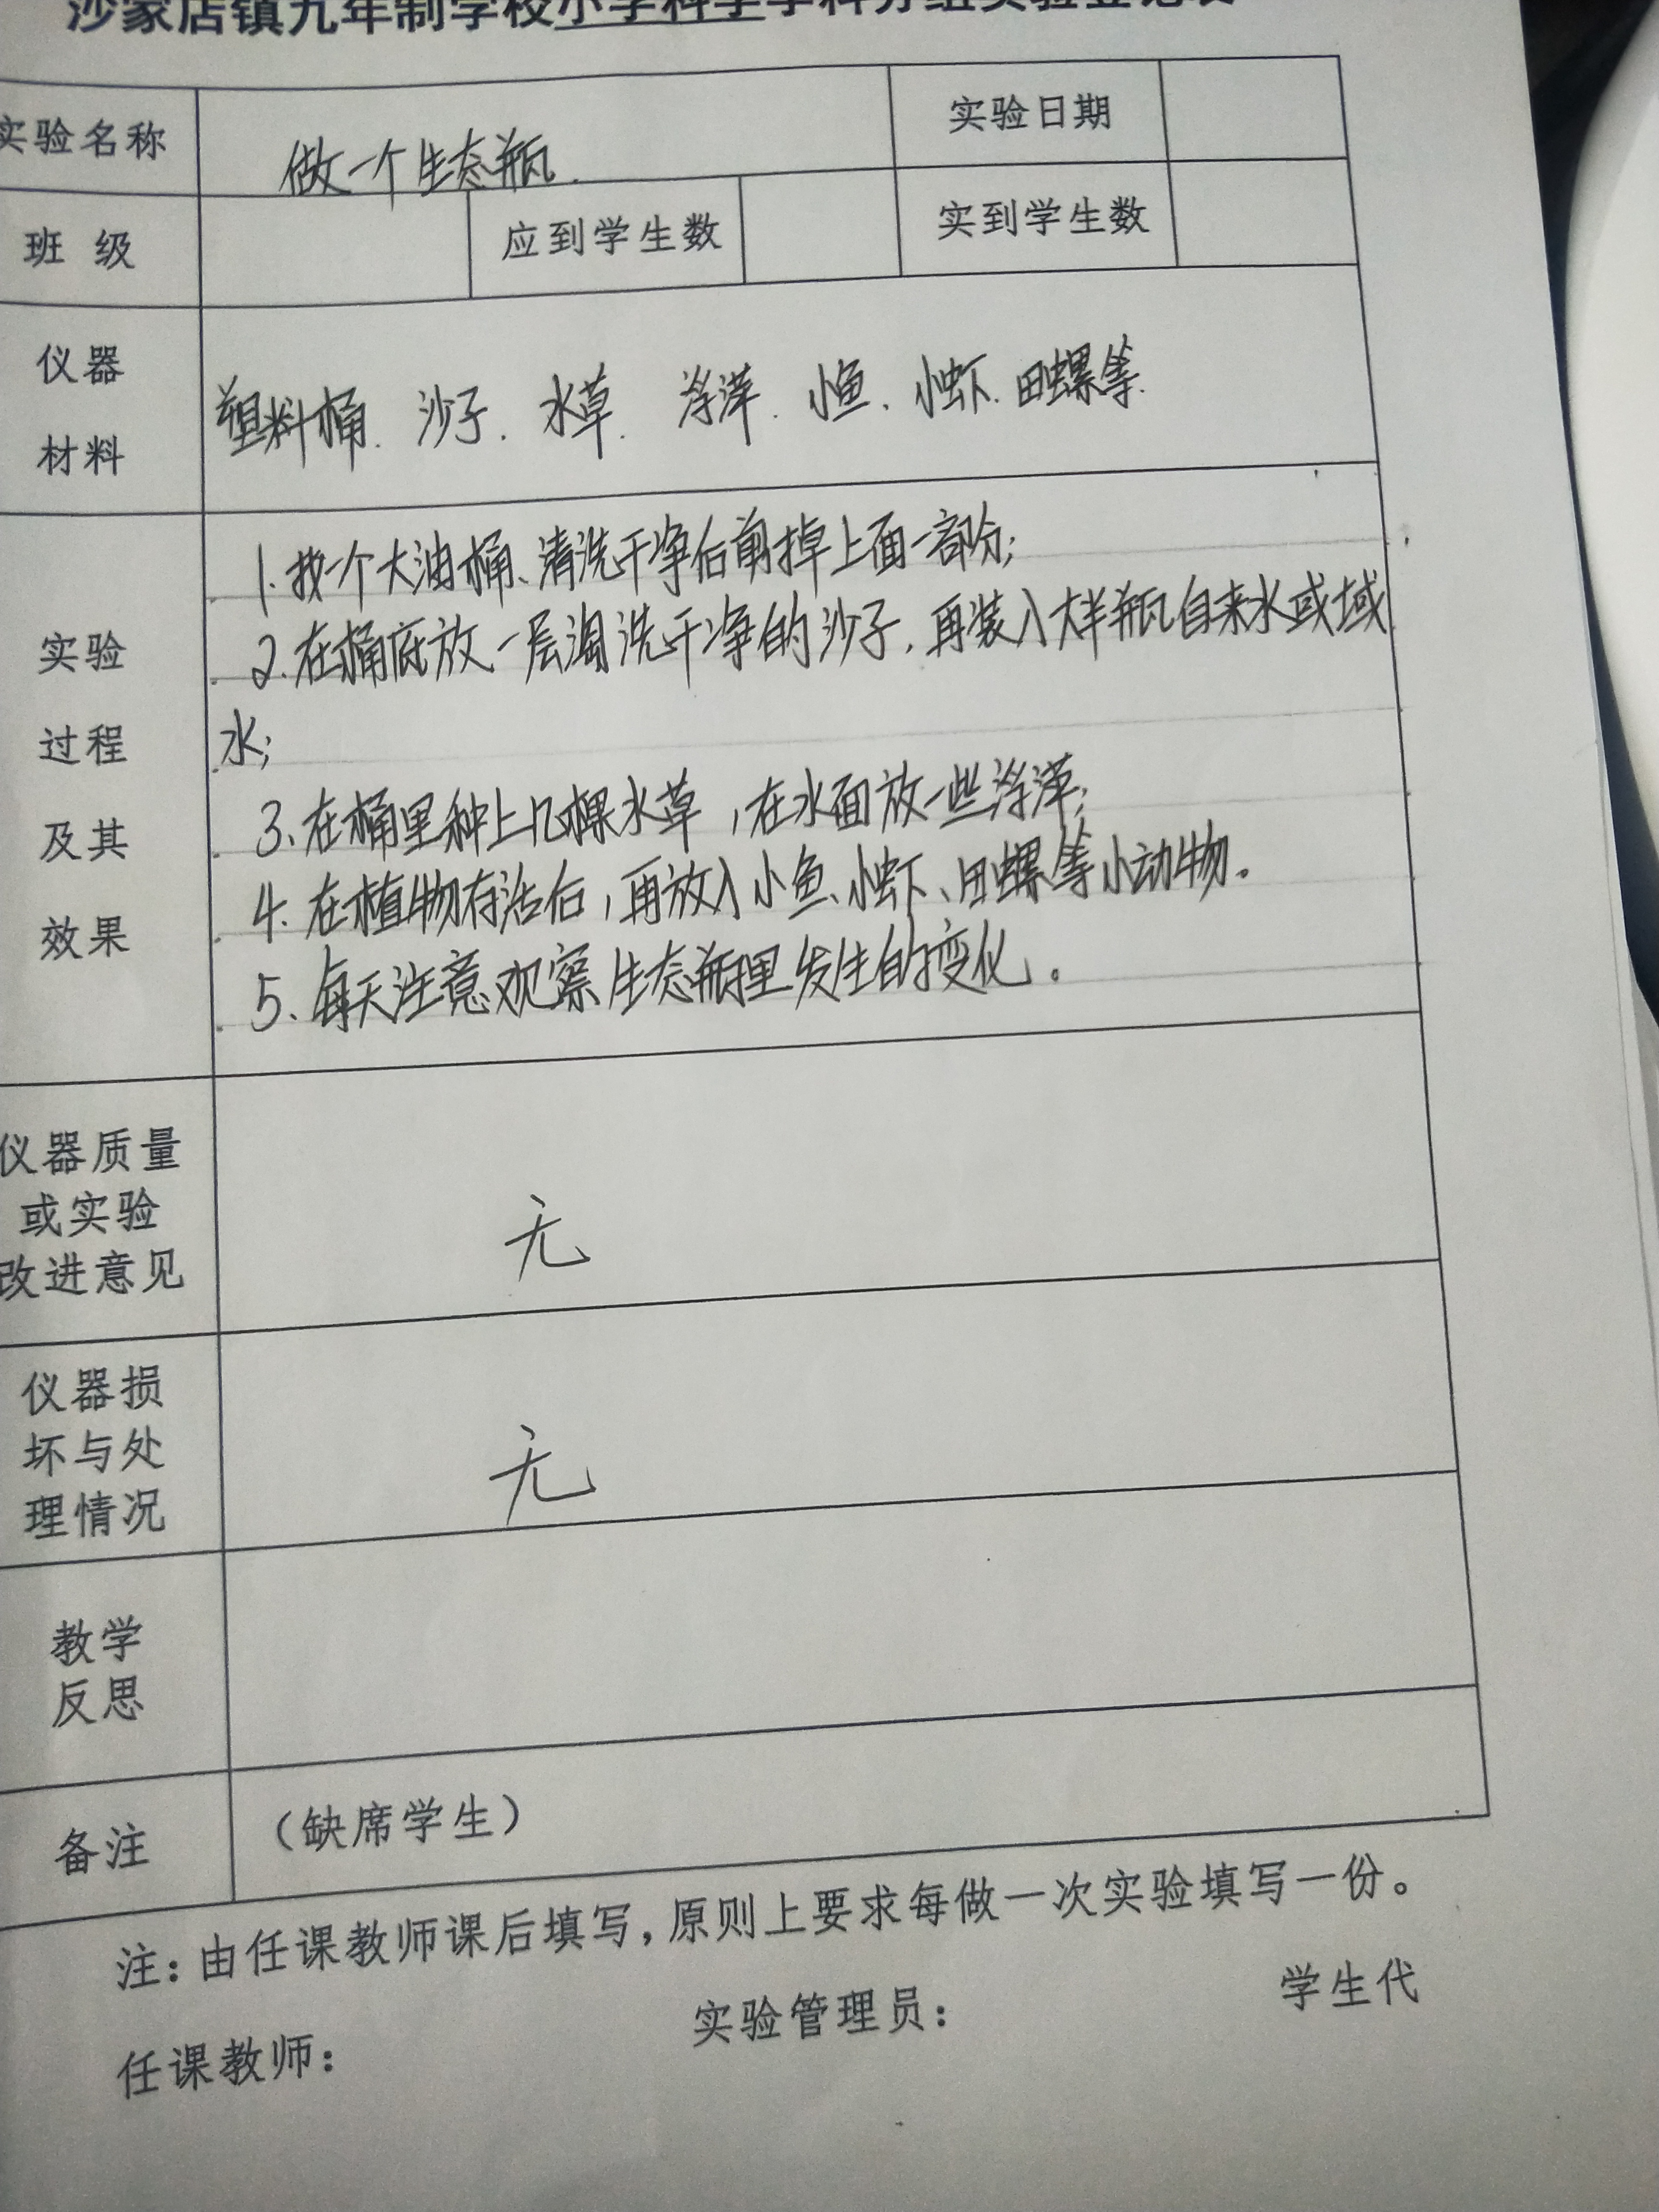 沙家店镇九年制学校小学科学学科分组实验登记表
实验名称 做一个生态瓶. 实验日期
班 级 应到学生数 实到学生数
仪器
材料
塑料桶. 沙子. 水草. 浮萍. 小鱼. 小虾. 田螺等.
实验
过程
及其
效果
1. 找一个大油桶、清洗干净后剪掉上面一部分;
2. 在桶底放一层淘洗干净的沙子, 再装入大半瓶自来水或域
水;
3、在桶里种上几棵水草,在水面放一些浮萍;
4. 在植物存活后,再放入小鱼、小虾、田螺等小动物。
5、每天注意观察生态瓶里发生的变化。
仪器质量
或实验
改进意见
无
仪器损
坏与处
理情况
无
教学
反思
备注 (缺席学生)
注:由任课教师课后填写,原则上要求每做一次实验填写一份。
任课教师: 实验管理员: 学生代